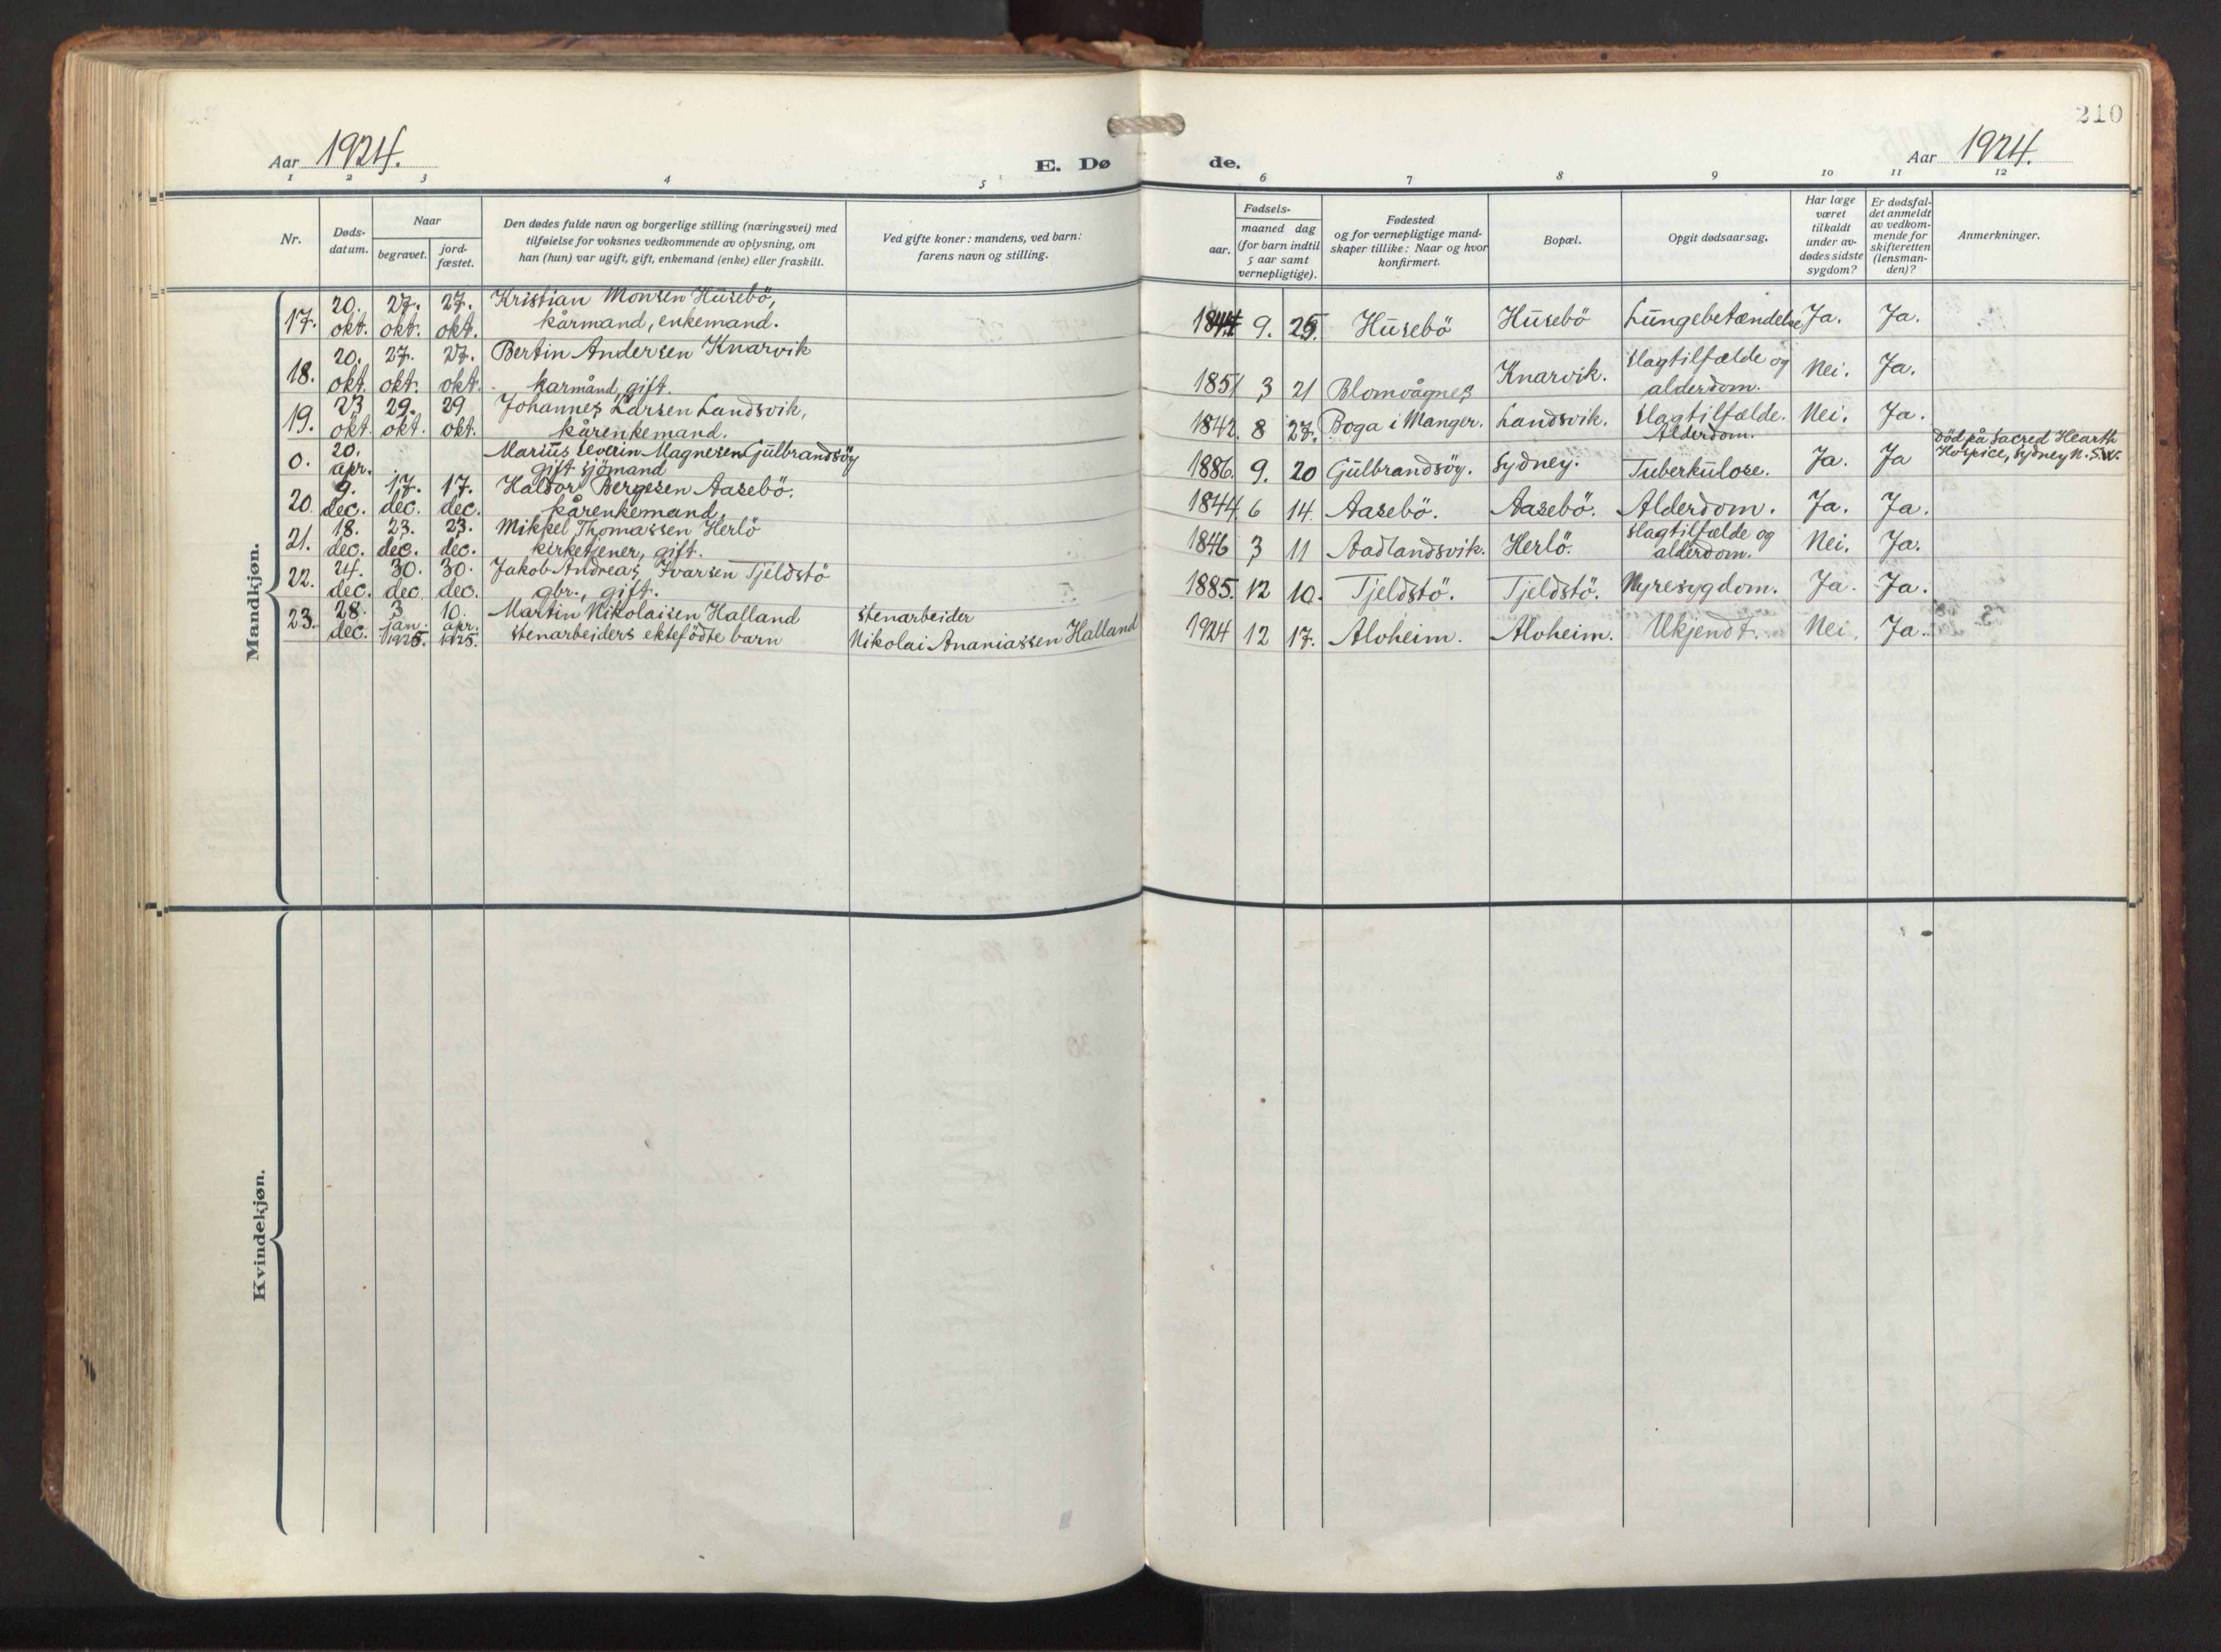 210
Aar 1924.
E. Døde.
Aar 1924.
1 2 3 4 5 6 7 8 9 10 11 12
Nr.
Døds-
datum.
Naar
begravet.
jord-
fæstet.
Den dødes fulde navn og borgerlige stilling (næringsvei) med
tilføielse for voksnes vedkommende av oplysning, om
han (hun) var ugift, gift, enkemand (enke) eller fraskilt.
Ved gifte koner: mandens, ved barn:
farens navn og stilling.
Fødsels-
aar.
maaned dag
(for barn indtil
5 aar samt
vernepligtige).
Fødested
og for vernepligtige mand-
skaper tillike: Naar og hvor
konfirmert.
Bopæl.
Opgit dødsaarsag.
Har læge
været
tilkaldt
under av-
dødes sidste
sygdom?
Er dødsfal-
det anmeldt
av vedkom-
mende for
skifteretten
(lensman-
den)?
Anmerkninger.
Mandkjøn.
17. 20. okt. 27. okt. 27. okt. Kristian Monsen Husebö,
kårmand, enkemand.
9. 25. Husebö Husebö Lungebetændelse Ja. Ja.
18. 20. okt. 27. okt. 27. okt. Bertin Andersen Knarvik
karmånd, gift.
1851 3 21 Blomvågnes Knarvik. Slagtilfælde og
alderdom. Nei. Ja.
19. 23 okt. 29. okt. 29 okt. Johannes Larsen Landsvik,
kårenkemand.
1842. 8 27. Boga i Manger. Landsvik. Slagtilfælde.
Alderdom. Nei. Ja.
0. 20. apr. Marius Severin Magnesen Gulbrandsöy
gift sjömand
1886. 9. 20 Gulbrandsöy. Sydney. Tuberkulose. Ja. Ja Död på Sacred Hearth
Hospice, Sydney N.S.W.
20. 9. dec. 17. dec. 17. dec. Haldor Bergesen Aasebö.
kårenkemand.
1844. 6 14. Aasebö. Aasebö. Alderdom. Ja. Ja.
21. 18. dec. 23. dec. 23. dec. Mikkel Thomassen Herlö
kirketjener, gift.
1846 3 11 Aadlandsvik. Herlö. Slagtilfælde og
alderdom. Nei. Ja.
22. 24. dec. 30. dec. 30. dec. Jakob Andreas Ivarsen Tjeldstö
gbr., gift.
1885. 12 10. Tjeldstö. Tjeldstö. Nyresygdom. Ja. Ja.
23. 28. dec. 3 jan. 1925. 10. apr. 1925. Martin Nikolaisen Halland
Stenarbeiders ektefödte barn
Stenarbeider
Nikolai Ananiassen Halland
1924 12 17. Aloheim. Aloheim. Ukjendt. Nei. Ja.
Kvindekjøn.